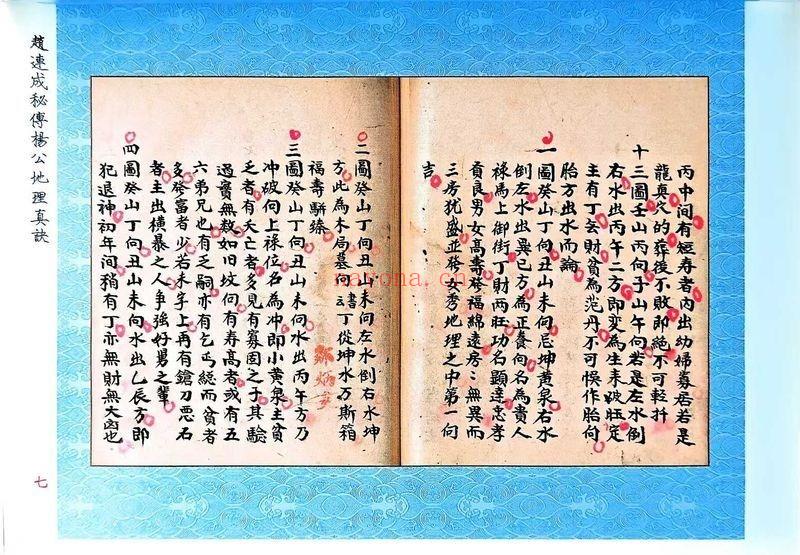 丙中間有短寿者內出幼婦寡居若是
龍真穴的葬後不敗即絕不可軽扦
十三圖壬山丙向子山午向若是左水倒
右水出丙午二方即変為生来破旺定
主有丁玄財貧為范丹不可悞作胎向
胎方出水而論
一圖癸山丁向丑山未向忌坤黃泉右水
倒左水出巽已方為正養向名為貴人
禄馬上御街丁財両旺功名顯達忠孝
賢良男女高壽發福綿遠房二無異而
三房犹盛並發女秀地理之中第一向
吉
二圖癸山丁向丑山未向左水倒右水坤
方此為木局墓向書丁從坤水万斯箱
福壽駢臻
三圖癸山丁向丑山未向水出丙午方乃
冲破向上禄位名為冲即小黃泉主貧
乏者有夭亡者多見有寡固之子其驗
過實無救如旧坟向有寿高者或有五
六弟兄也有乏嗣亦有乞丐総而貧者
多發富者少若水字上再有鎗刀悪石
者主出横暴之人争強好男之輩
四圖癸山丁向丑山未向水出乙辰方即
犯退神初年間稍有丁亦無財無大凶也
趙連成秘傳楊公地理真訣
七
nayona.cn